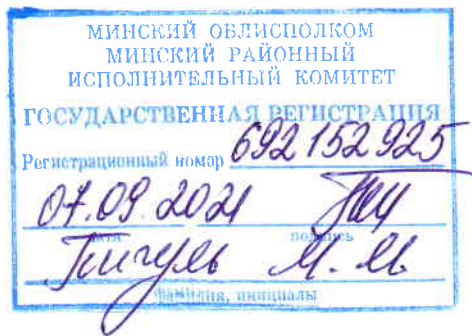 МИНСКИЙ ОБЛИСПОЛКОМ
МИНСКИЙ РАЙОННЫЙ
ИСПОЛНИТЕЛЬНЫЙ КОМИТЕТ
ГОСУДАРСТВЕННАЯ РЕГИСТРАЦИЯ
Регистрационный номер 692152925
07.09.2021
дата подпись
М. М.
фамилия, инициалы